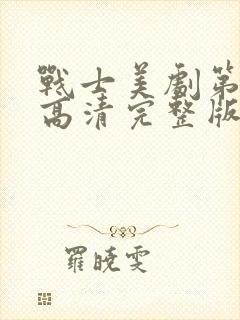 戰士美劇第
高清完整版
羅曉雯